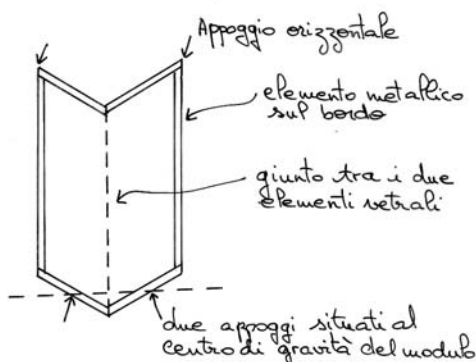 Appoggio orizzontale
elemento metallico
sul bordo
giunto tra i due
elementi vetrali
due appoggi situati al
centro di gravità del modulo